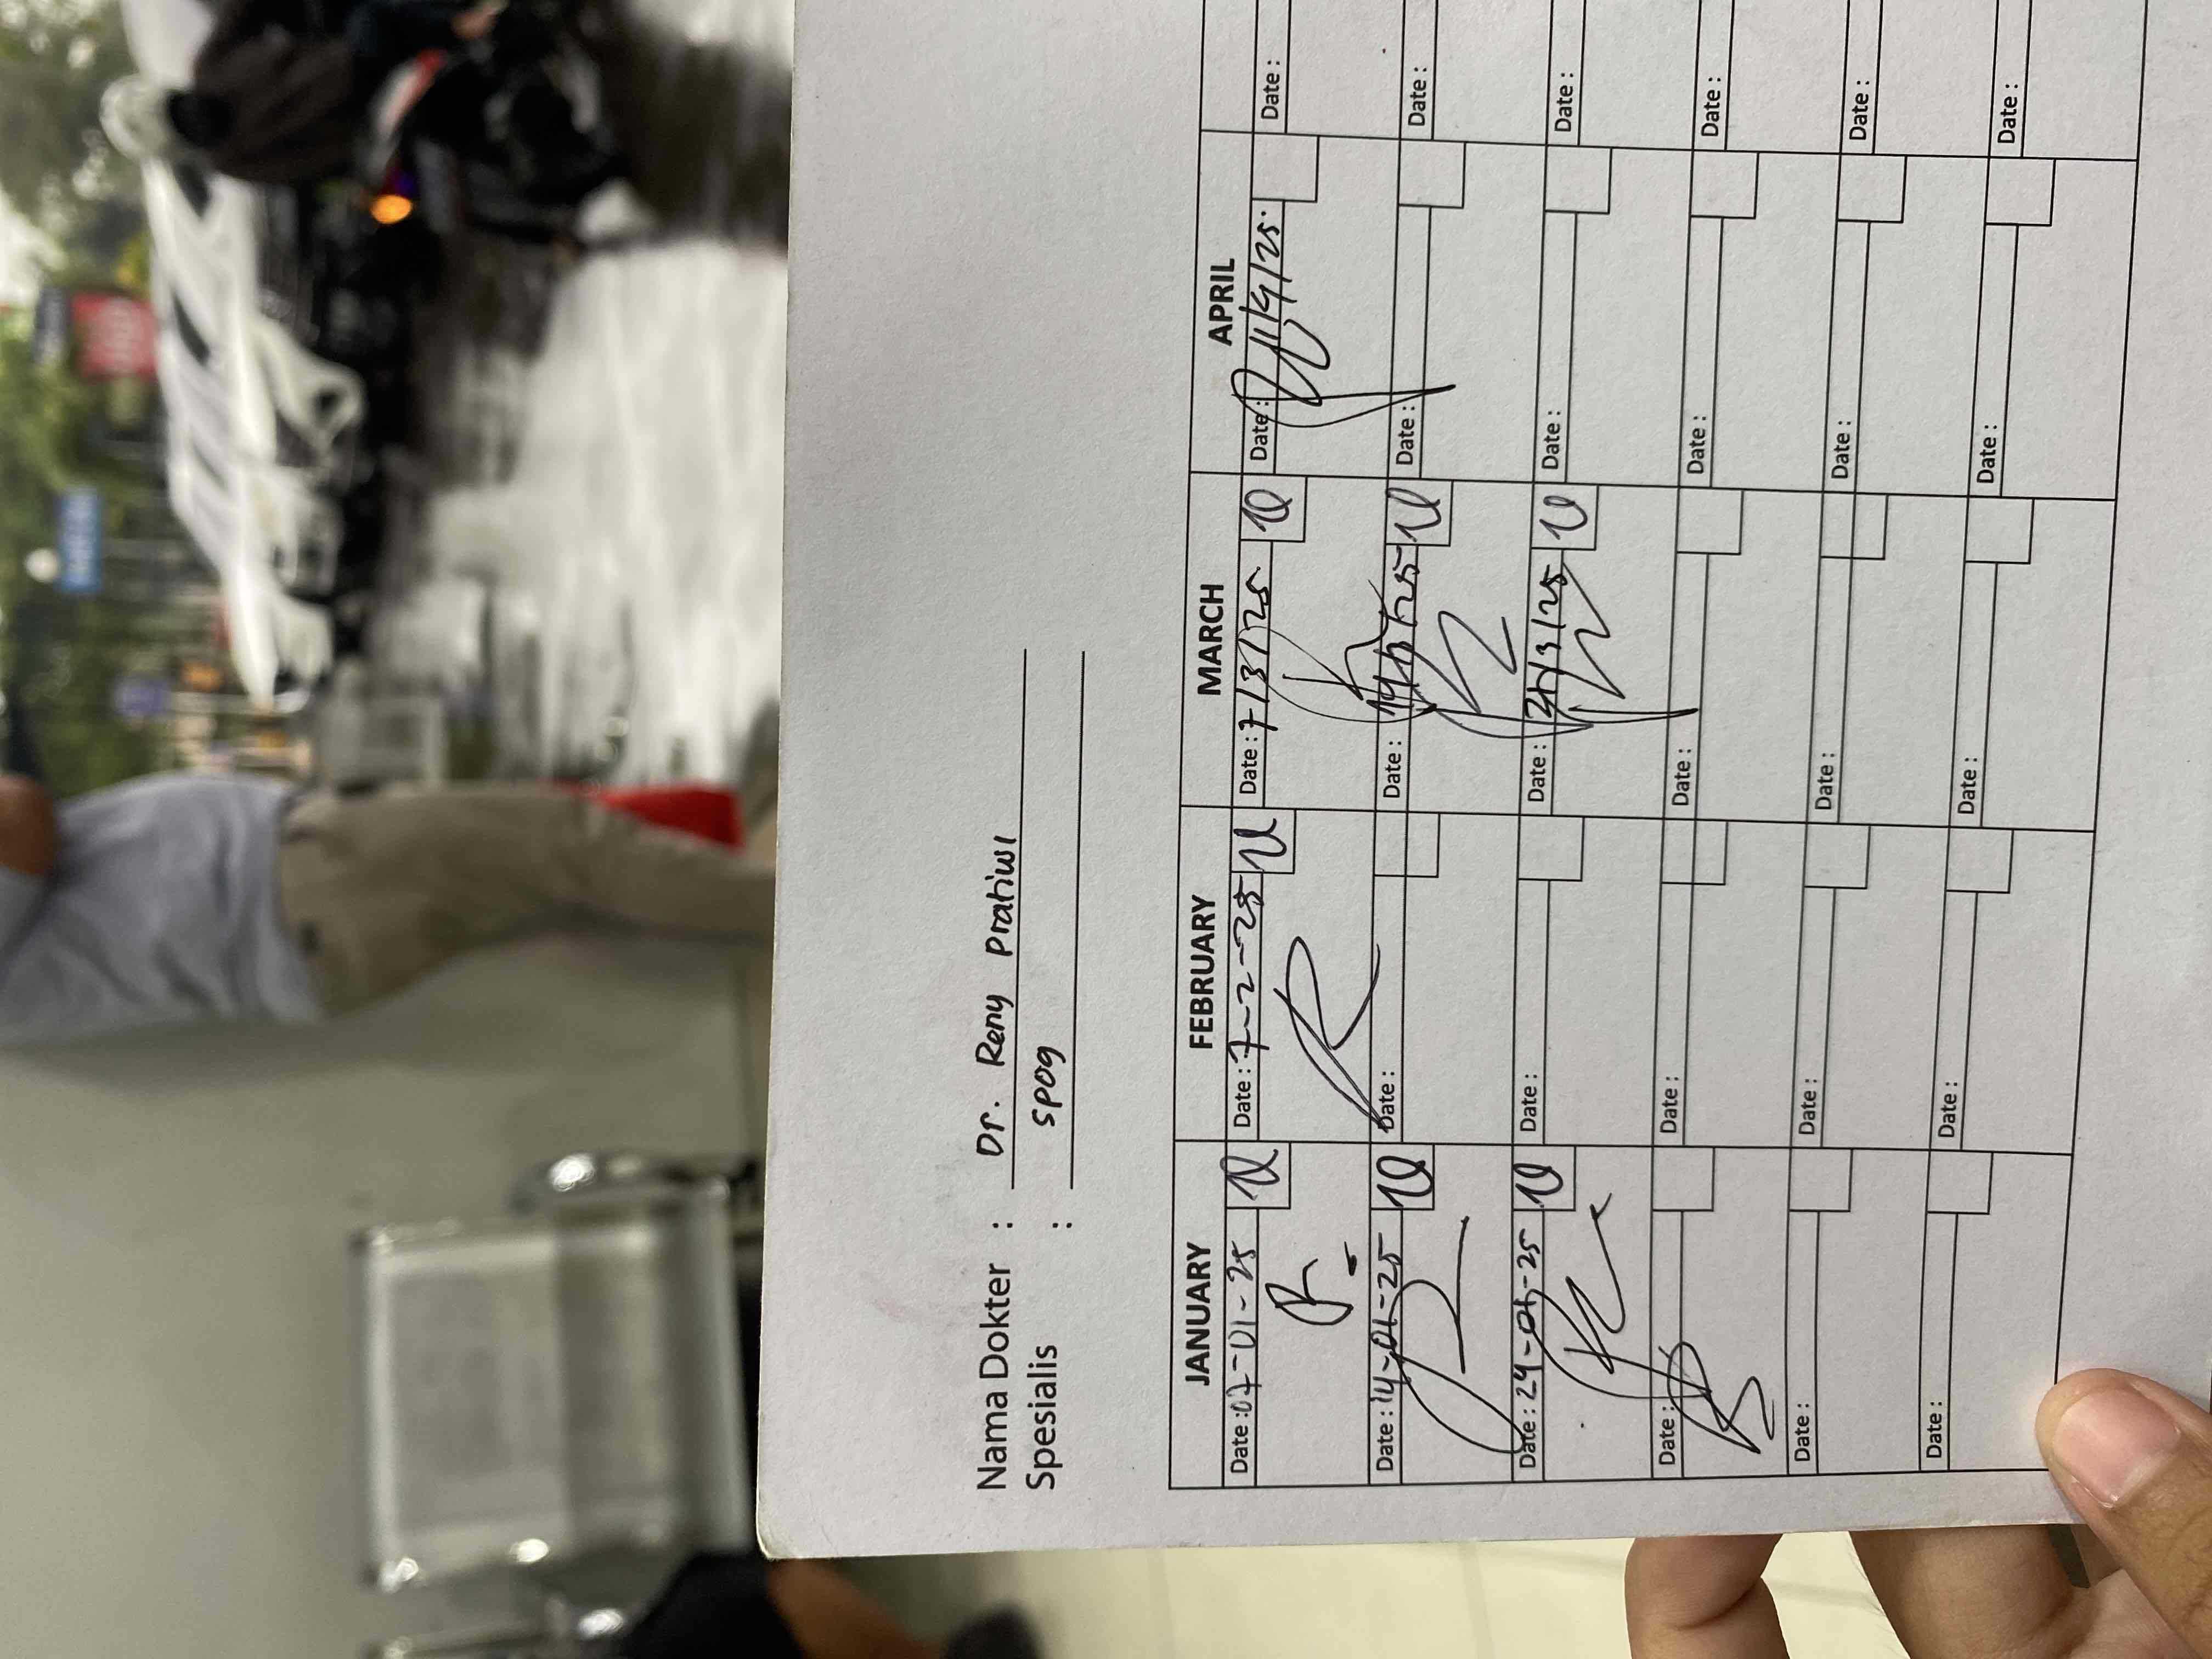 Nama Dokter : Dr. Reny Pratiwi
Spesialis : SPOG
JANUARY FEBRUARY MARCH APRIL
Date : 07-01-25 Date : 7-2-25 Date : 7/3/25 Date : 11/4/25. Date :
Date : 14-01-25 Date : Date : 14/3/25 Date : Date :
Date : 24-01-25 Date : Date : 21/3/25 Date : Date :
Date : Date : Date : Date : Date :
Date : Date : Date : Date : Date :
Date : Date : Date : Date : Date :